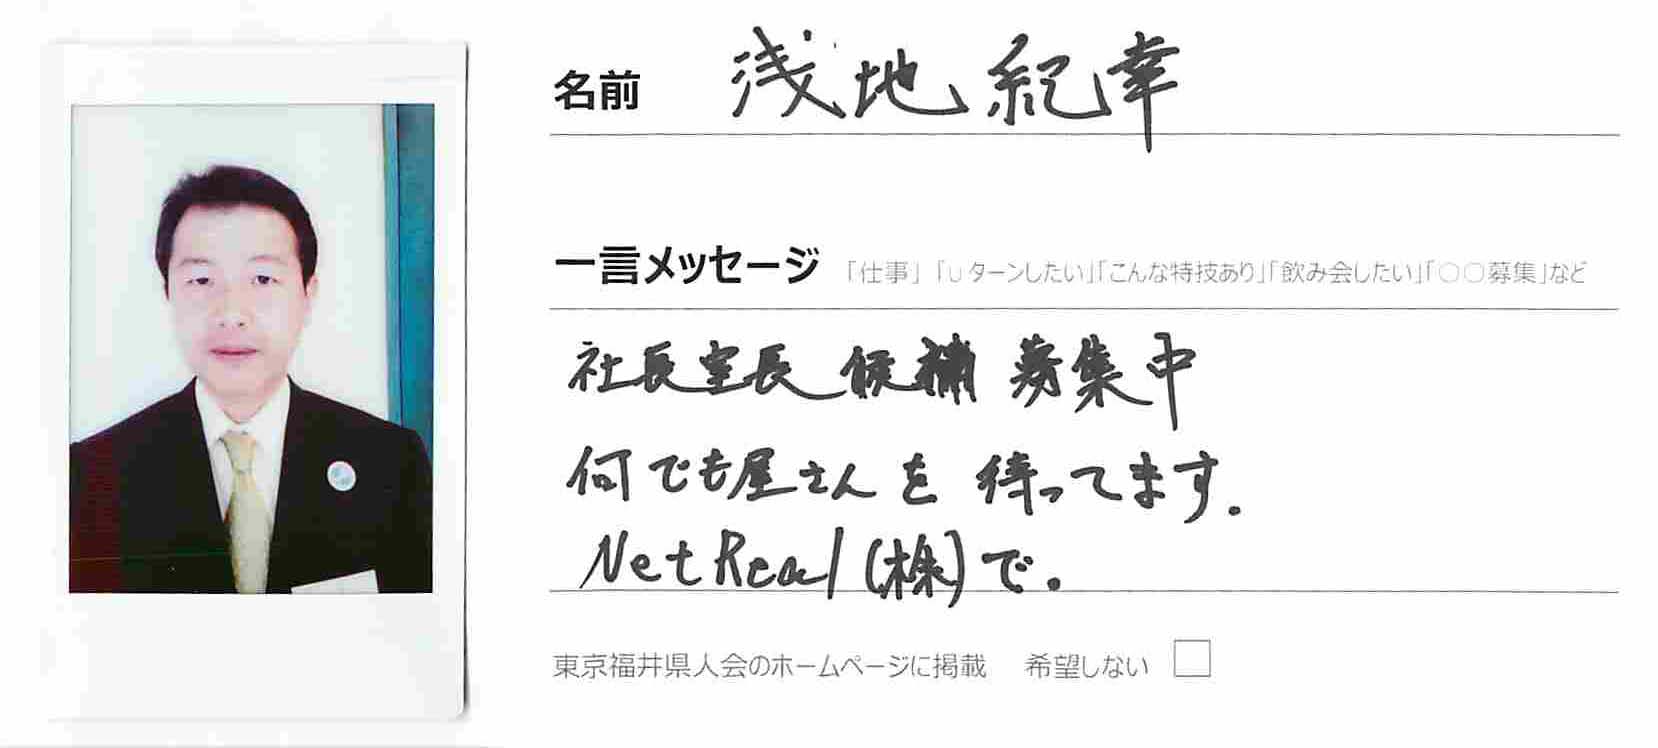 名前 浅地 紀幸
一言メッセージ 「仕事」「Uターンしたい」「こんな特技あり」「飲み会したい」「○○募集」など
社長室長候補 募集中
何でも屋さんを 待ってます.
NetReal(株)で.
東京福井県人会のホームページに掲載 希望しない □